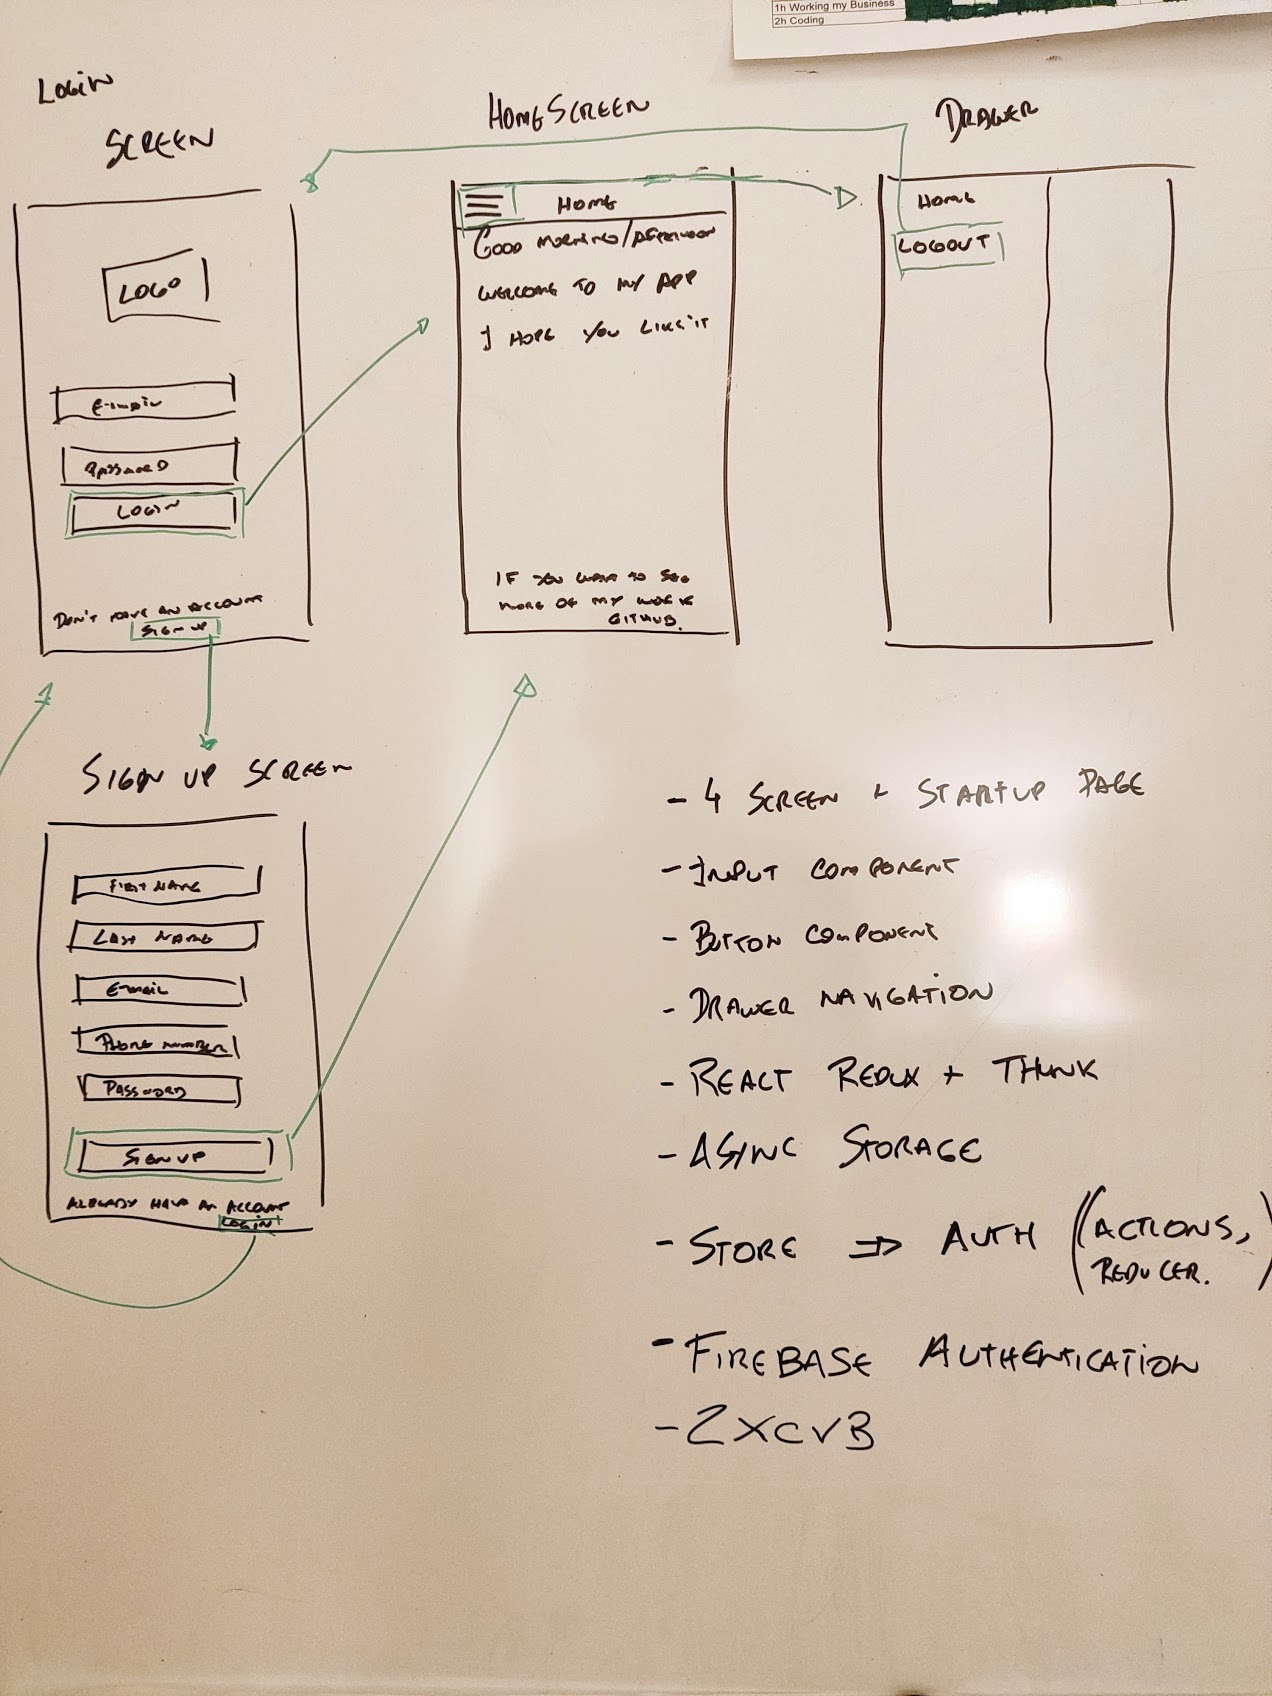 1h Working my Business
2h Coding
LOGIN
SCREEN
LOGO
E-mail
PASSWORD
LOGIN
DON'T HAVE AN ACCOUNT
SIGN UP
HOME SCREEN
HOME
GOOD MORNING/AFTERNOON
WELCOME TO MY APP
I HOPE YOU LIKE IT
IF YOU WANT TO SEE
MORE OF MY WORK
GITHUB.
DRAWER
HOME
LOGOUT
SIGN UP SCREEN
FIRST NAME
LAST NAME
E-mail
PHONE NUMBER
PASSWORD
SIGN UP
ALREADY HAVE AN ACCOUNT
LOGIN
- 4 SCREEN + STARTUP PAGE
- INPUT COMPONENT
- BUTTON COMPONENT
- DRAWER NAVIGATION
- REACT REDUX + THUNK
- ASYNC STORAGE
- STORE => AUTH (ACTIONS,
REDUCER.)
- FIREBASE AUTHENTICATION
- ZXCVB